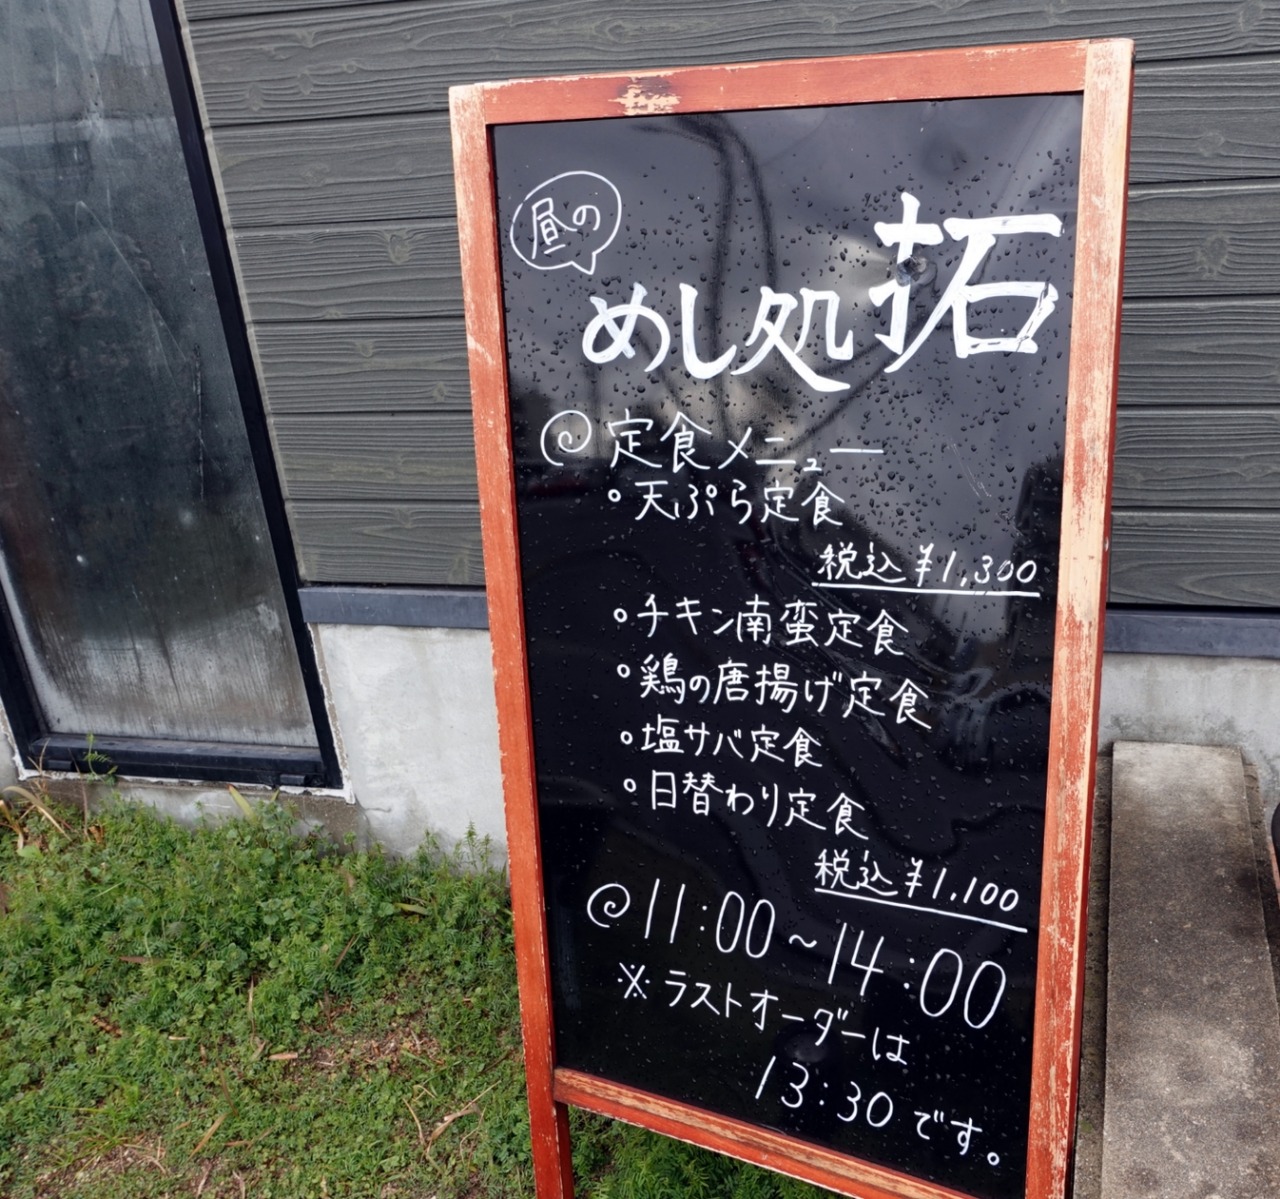 昼の
めし処 拓
定食メニュー
・天ぷら定食
税込¥1,300
・チキン南蛮定食
・鶏の唐揚げ定食
・塩サバ定食
・日替わり定食
税込¥1,100
11:00~14:00
※ラストオーダーは
13:30です。